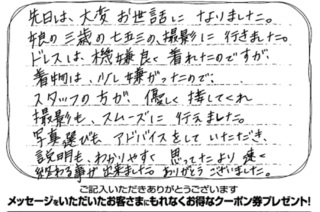 先日は、大変 お世話に なりました。
娘の 三歳の 七五三の、撮影に 行きました。
ドレスは、機嫌良く 着れたのですが、
着物は、少し 嫌がったので、
スタッフの 方が、優しく 接してくれ
撮影も、スムーズに 行えました。
写真選びも アドバイスを して いただき、
説明も、わかりやすく 思ってたより 速く
終わる事が 出来ました。ありがとう ございました。
ご記入いただきありがとうございます
メッセージをいただいたお客さまにもれなくお得なクーポン券プレゼント!